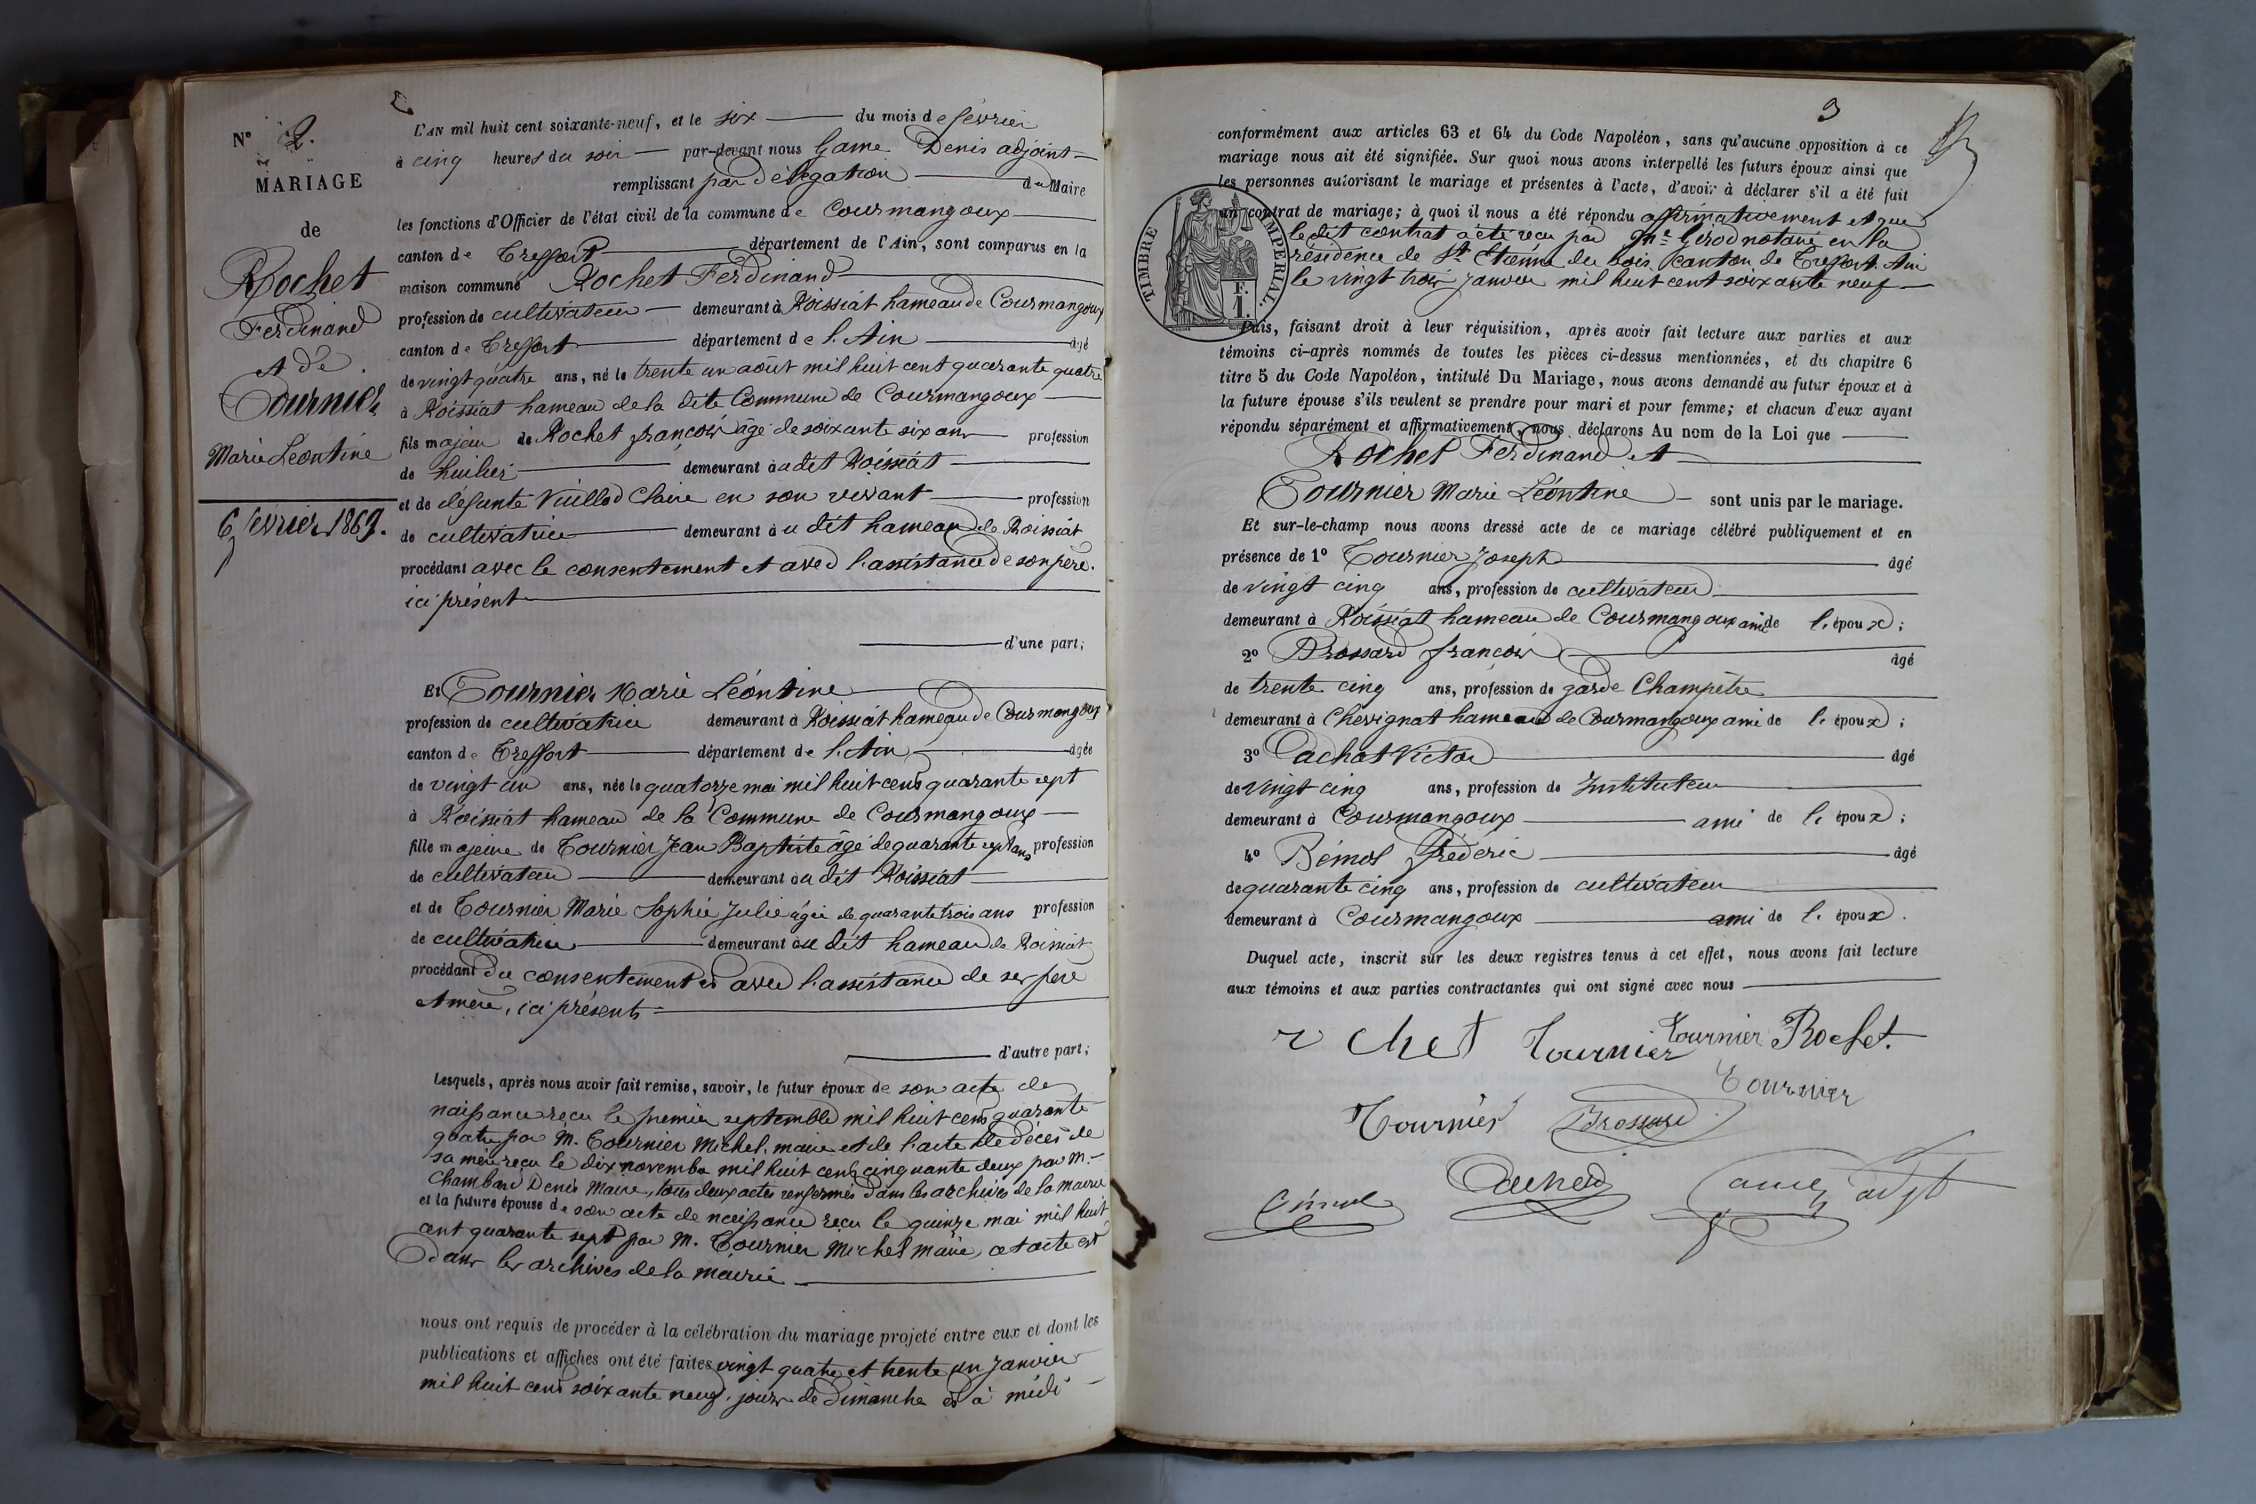 2
N° 2.
MARIAGE
de
Rochet
Ferdinand
et de
Tournier
Marie Léontine
6 février 1869.
L'AN mil huit cent soixante-neuf, et le six du mois de février
à cinq heures du soir par-devant nous Game Denis adjoint
remplissant par délégation du Maire
les fonctions d'Officier de l'état civil de la commune de Courmangoux
canton de Treffort département de l'Ain, sont comparus en la
maison commune Rochet Ferdinand
profession de cultivateur demeurant à Roissiat hameau de Courmangoux
canton de Treffort département de l'Ain âgé
de vingt quatre ans, né le trente un août mil huit cent quarante quatre
à Roissiat hameau de la dite Commune de Courmangoux
fils majeur de Rochet françois âgé de soixante six ans profession
de huilier demeurant au dit Roissiat
et de défunte Vuillod Claire en son vivant profession
de cultivatrice demeurant au dit hameau de Roissiat
procédant avec le consentement et avec l'assistance de son père.
ici présent
d'une part;
Et Tournier Marie Léontine
profession de cultivatrice demeurant à Roissiat hameau de Courmangoux
canton de Treffort département de l'Ain âgée
de vingt un ans, née le quatorze mai mil huit cent quarante sept
à Roissiat hameau de la Commune de Courmangoux
fille majeure de Tournier Jean Baptiste âgé de quarante sept ans profession
de cultivateur demeurant au dit Roissiat
et de Tournier Marie Sophie Julie âgée de quarante trois ans profession
de cultivatrice demeurant au dit hameau de Roissiat
procédant du consentement et avec l'assistance de ses père
et mère, ici présents
d'autre part;
Lesquels, après nous avoir fait remise, savoir, le futur époux de son acte de
naissance reçu le premier septembre mil huit cent quarante
quatre par M. Tournier Michel, maire et de l'acte de décès de
sa mère reçu le dix novembre mil huit cent cinquante deux par M.
Chambard Denis Maire, tous deux actes renfermés dans les archives de la mairie
et la future épouse de son acte de naissance reçu le quinze mai mil huit
cent quarante sept par M. Tournier Michel maire, cet acte est
dans les archives de la mairie
nous ont requis de procéder à la célébration du mariage projeté entre eux et dont les
publications et affiches ont été faites vingt quatre et trente un janvier
mil huit cent soixante neuf, jours de dimanche et à midi
3
conformément aux articles 63 et 64 du Code Napoléon, sans qu'aucune opposition à ce
mariage nous ait été signifiée. Sur quoi nous avons interpellé les futurs époux ainsi que
les personnes autorisant le mariage et présentes à l'acte, d'avoir à déclarer s'il a été fait
un contrat de mariage; à quoi il nous a été répondu affirmativement et que
le dit contrat a été reçu par Me Gérod notaire en la
résidence de St Etienne du bois canton de Treffort Ain
le vingt trois janvier mil huit cent soixante neuf
TIMBRE IMPERIAL.
F.
1.
Puis, faisant droit à leur réquisition, après avoir fait lecture aux parties et aux
témoins ci-après nommés de toutes les pièces ci-dessus mentionnées, et du chapitre 6
titre 5 du Code Napoléon, intitulé Du Mariage, nous avons demandé au futur époux et à
la future épouse s'ils veulent se prendre pour mari et pour femme; et chacun d'eux ayant
répondu séparément et affirmativement, nous déclarons Au nom de la Loi que
Rochet Ferdinand et
Tournier Marie Léontine sont unis par le mariage.
Et sur-le-champ nous avons dressé acte de ce mariage célébré publiquement et en
présence de 1° Tournier Joseph âgé
de vingt cinq ans, profession de cultivateur
demeurant à Roissiat hameau de Courmangoux ami de l'époux;
2° Brossard françois âgé
de trente cinq ans, profession de garde Champêtre
demeurant à Chevignat hameau de Courmangoux ami de l'époux;
3° Pachot Victor âgé
de vingt cinq ans, profession de Instituteur
demeurant à Courmangoux ami de l'époux;
4° Bémol Frédéric âgé
de quarante cinq ans, profession de cultivateur
demeurant à Courmangoux ami de l'époux.
Duquel acte, inscrit sur les deux registres tenus à cet effet, nous avons fait lecture
aux témoins et aux parties contractantes qui ont signé avec nous
r chet Tournier Tournier Rochet.
Tournier
Tournier Brossard
Game adjt